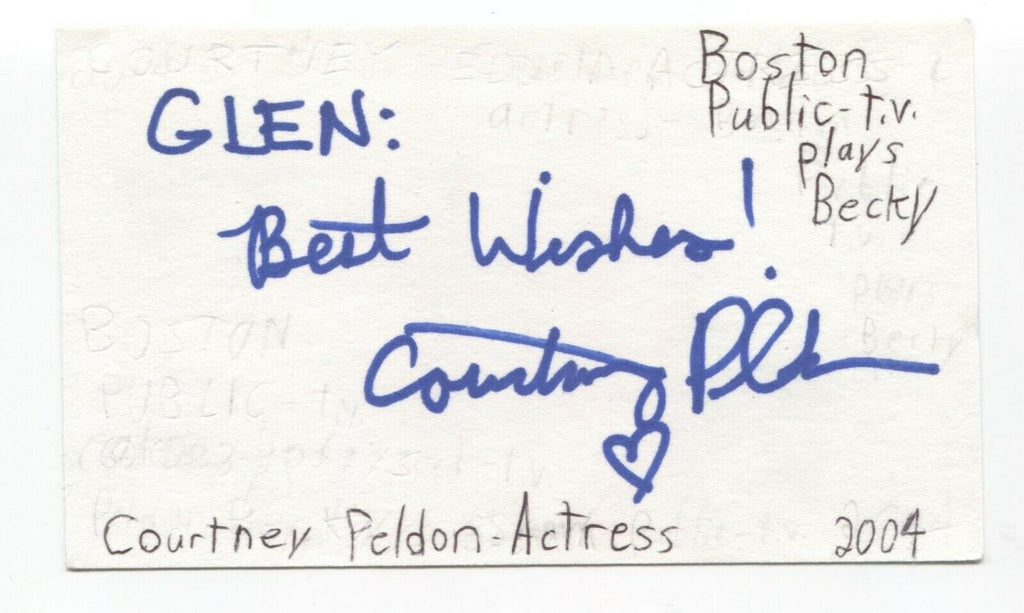 Boston
Public-t.v.
plays
Becky
GLEN:
Best Wishes!
Courtney Peldon
Courtney Peldon-Actress 2004